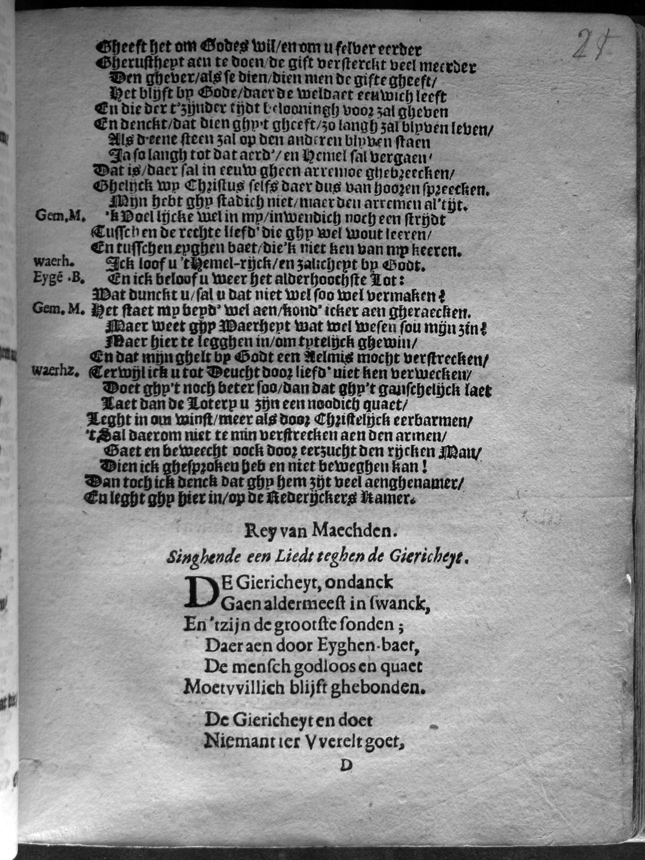 25
Gheeft het om Godes wil/en om u selver eerder
Gherustheyt aen te doen/de gift versterckt veel meerder
Den ghever/als se dien/dien men de gifte gheeft/
Het blijft by Gode/daer de weldaet eeuwich leeft
En die der t'zijnder tijdt belooningh voor zal gheven
En denckt/dat dien ghy't gheeft/zo langh zal blyven leven/
Als d'eene steen zal op den anderen blyven staen
Ja so langh tot dat aerd'/en Hemel sal vergaen/
Dat is/daer sal in eeuw gheen arremoe ghebreecken/
Ghelijck wy Christus selfs daer dus van hooren spreecken.
Mijn hebt ghy stadich niet/maer den arremen al'tijt.
Gem.M. 'k Voel lijcke wel in my/inwendich noch een strijdt
Tusschen de rechte liefd' die ghy wel wout leeren/
En tusschen eyghen baet/die'k niet ken van my keeren.
waerh. Ick loof u 'tHemel-rijck/en zalicheyt by Godt.
Eygē.B. En ick beloof u weer het alderhoochste Lot:
Wat dunckt u/sal u dat niet wel soo wel vermaken?
Gem.M. Het staet my beyd' wel aen/kond' icker aen gheraecken.
Maer weet ghy Waerheyt wat wel wesen sou mijn zin?
Maer hier te legghen in/om tytelijck ghewin/
En dat mijn ghelt by Godt een Aelmis mocht verstrecken/
waerhz. Terwijl ick u tot Deucht door liefd' niet ken verwecken/
Doet ghy't noch beter soo/dan dat ghy't ganschelijck laet
Laet dan de Lotery u zijn een noodich quaet/
Leght in om winst/meer als door Christelijck eerbarmen/
't Sal daerom niet te min verstrecken aen den armen/
Gaet en beweecht oock door eerzucht den rijcken Man/
Dien ick ghesproken heb en niet beweghen kan!
Dan toch ick denck dat ghy hem zijt veel aenghenamer/
En leght ghy hier in/op de Rederijckers Kamer.
Rey van Maechden.
Singhende een Liedt teghen de Giericheyt.
DE Giericheyt, ondanck
Gaen aldermeest in swanck,
En 'tzijn de grootste sonden;
Daer aen door Eyghen-baet,
De mensch godloos en quaet
Moetvvillich blijft ghebonden.
De Giericheyt en doet
Niemant ter Vverelt goet,
D